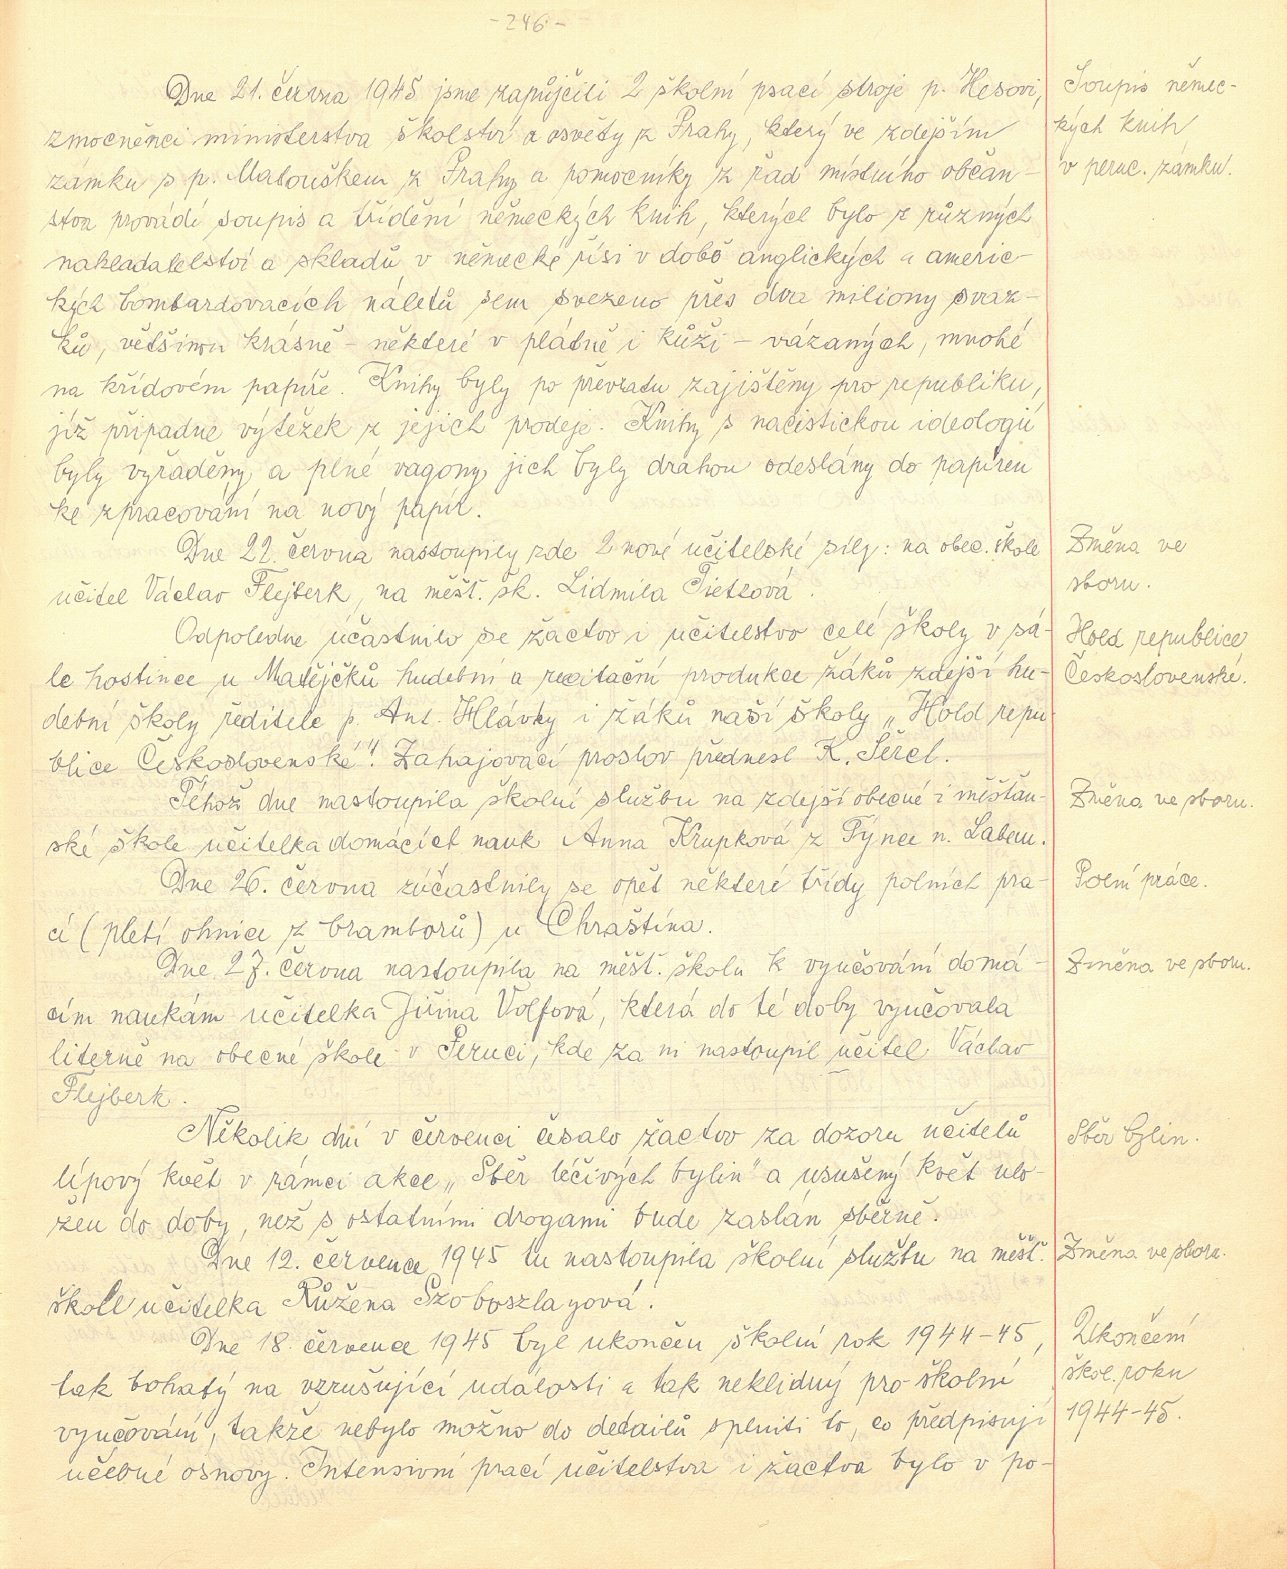 - 246 -
Dne 21. června 1945 jsme zapůjčili 2 školní psací stroje p. Hesovi,
zmocněnci ministerstva školství a osvěty z Prahy, který ve zdejším
zámku s p. Matouškem z Prahy a pomocníky z řad místního občan-
stva provádí soupis a třídění německých knih, kterých bylo z různých
nakladatelství a skladů v německé říši v době anglických a americ-
kých bombardovacích náletů sem svezeno přes dva miliony svaz-
ků, většinou krásně - některé v plátně i kůži - vázaných, mnohé
na křídovém papíře. Knihy byly po převratu zajištěny pro republiku,
jíž připadne výtěžek z jejich prodeje. Knihy s nacistickou ideologií
byly vyřaděny a plné vagony jich byly drahou odeslány do papíren
ke zpracování na nový papír.
Dne 22. června nastoupily zde 2 nové učitelské síly: na obec. škole
učitel Václav Flejberk, na měšť. šk. Lidmila Tietzová.
Odpoledne účastnilo se žactvo i učitelstvo celé školy v sá-
le hostince u Matějčků hudební a recitační produkce žáků zdejší hu-
dební školy ředitele p. Ant. Hlávky i žáků naší školy „Hold repu-
blice Československé". Zahajovací proslov přednesl K. Šércl.
Téhož dne nastoupila školní službu na zdejší obecné i měšťan-
ské škole učitelka domácích nauk Anna Krupková z Týnce n. Labem.
Dne 26. června zúčastnily se opět některé třídy polních pra-
cí (pletí ohnice z bramborů) u Chraštína.
Dne 27. června nastoupila na měšť. školu k vyučování domá-
cím naukám učitelka Jiřina Volfová, která do té doby vyučovala
literně na obecné škole v Peruci, kde za ni nastoupil učitel Václav
Flejberk.
Několik dní v červenci česalo žactvo za dozoru učitelů
lípový květ v rámci akce „Sběr léčivých bylin" a usušený květ ulo-
žen do doby, než s ostatními drogami bude zaslán sběrně.
Dne 12. července 1945 tu nastoupila školní službu na měšť.
škole učitelka Růžena Szoboszlayová.
Dne 18. července 1945 byl ukončen školní rok 1944-45,
tak bohatý na vzrušující události a tak neklidný pro školní
vyučování, takže nebylo možno do detailů splniti to, co předpisují
učebné osnovy. Intensivní prací učitelstva i žactva bylo v po-
Soupis němec-
kých knih
v peruc. zámku.
Změna ve
sboru.
Hold republice
Československé.
Změna ve sboru.
Polní práce.
Změna ve sboru.
Sběr bylin.
Změna ve sboru.
Ukončení
škol. roku
1944-45.